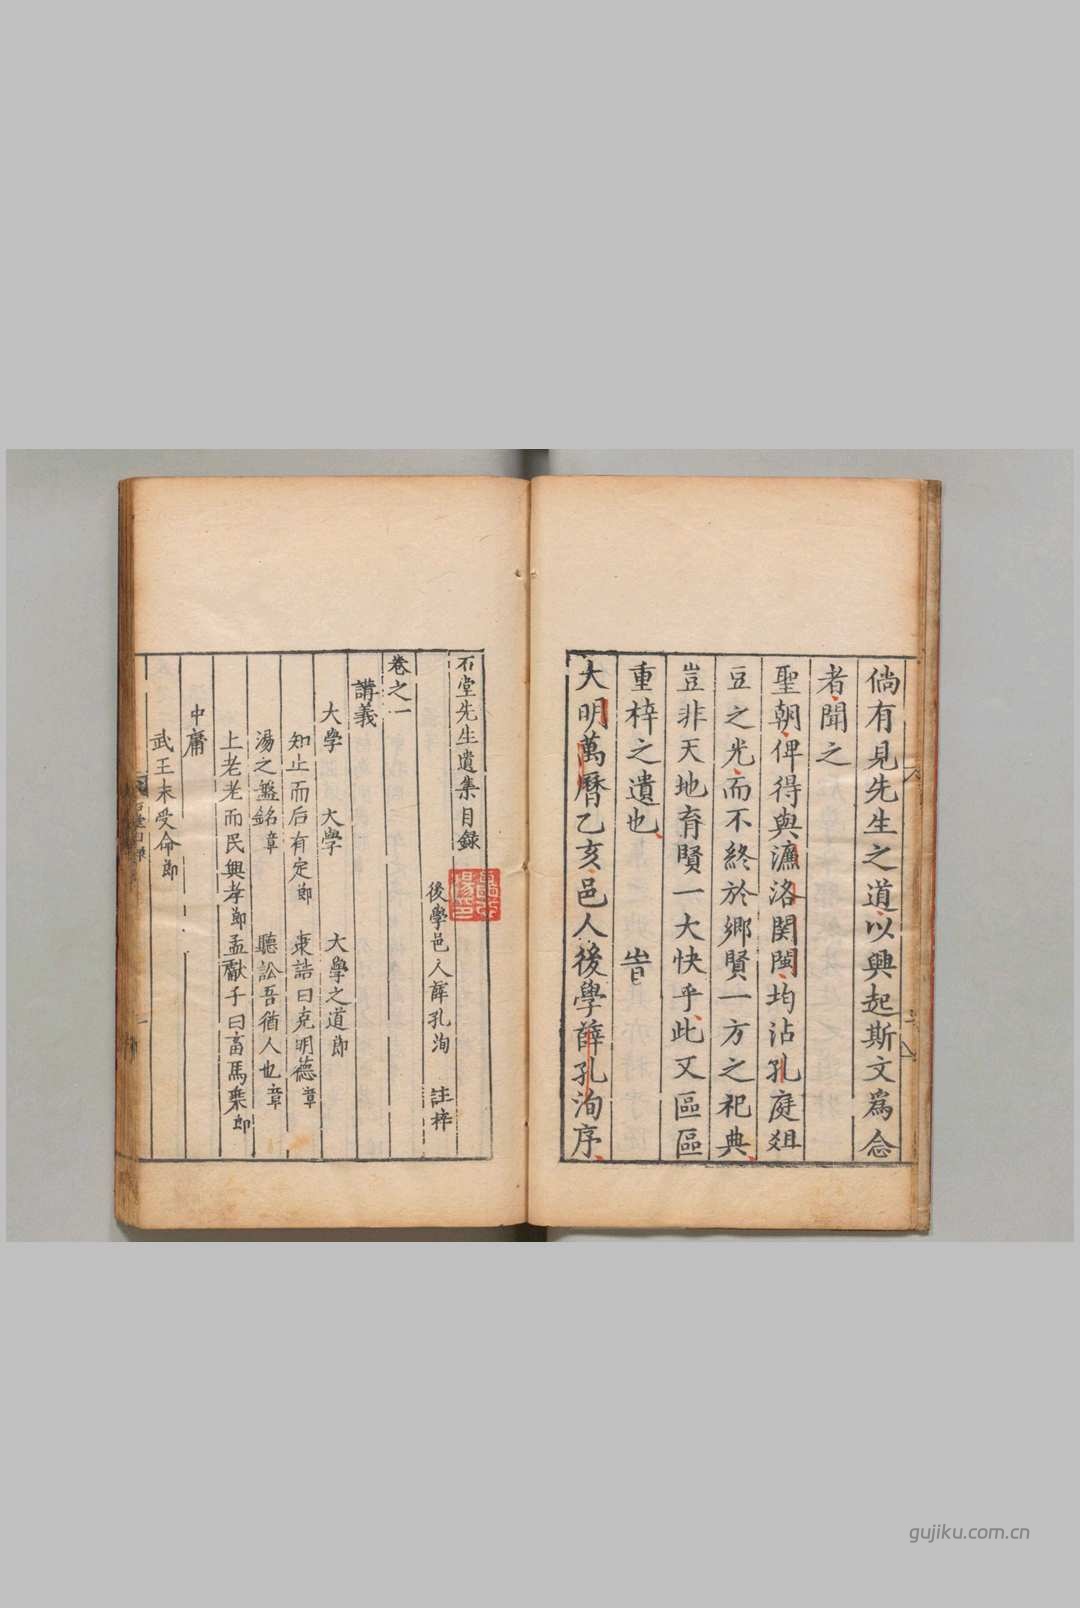 倘有見先生之道以興起斯文爲念
者聞之
聖朝俾得與濂洛関閩均沾孔庭俎
豆之光而不終於鄉賢一方之祀典
豈非天地育賢一大快乎此又區區
重梓之遺也 旹
大明萬曆乙亥邑人後學薛孔洵序
石堂先生遺集目錄
後學邑人薛孔洵 註梓
卷之一
講義
大學 大學 大學之道節
知止而后有定節 康誥曰克明德章
湯之盤銘章 聽訟吾猶人也章
上老老而民興孝節 孟獻子曰畜馬乘節
中庸
武王末受命節
gujiku.com.cn